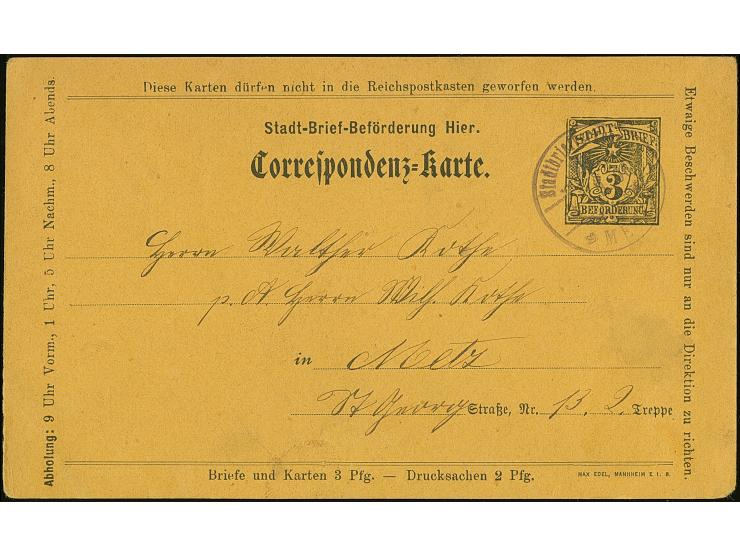 Diese Karten dürfen nicht in die Reichspostkasten geworfen werden.
Stadt-Brief-Beförderung Hier.
Correspondenz-Karte.
STADT BRIEF
3
BEFÖRDERUNG
Stadtbrie
ME
Herrn Walther Kothe
p. A Herrn Wilh. Kothe
in Metz
St Georg Straße, Nr. 13. 2. Treppe
Briefe und Karten 3 Pfg. — Drucksachen 2 Pfg.
MAX EDEL, MANNHEIM E 1. 8.
Abholung: 9 Uhr Vorm., 1 Uhr, 5 Uhr Nachm., 8 Uhr Abends.
Etwaige Beschwerden sind nur an die Direktion zu richten.